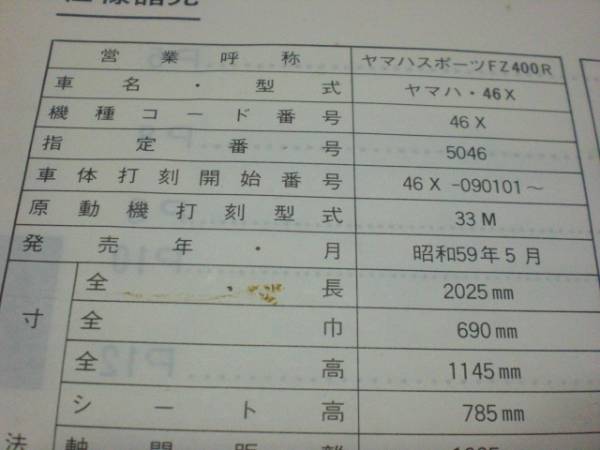 仕様諸元
営業呼称 ヤマハスポーツFZ400R
車名・型式 ヤマハ・46X
機種コード番号 46X
指定番号 5046
車体打刻開始番号 46X-090101～
原動機打刻型式 33M
発売年・月 昭和59年5月
寸法
全長 2025mm
全巾 690mm
全高 1145mm
シート高 785mm
軸間距離